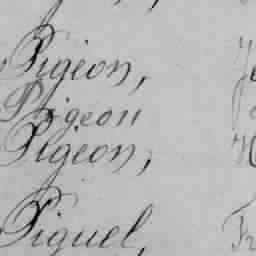 Pigeon,
Pigeon
Pigeon,
Piquel,